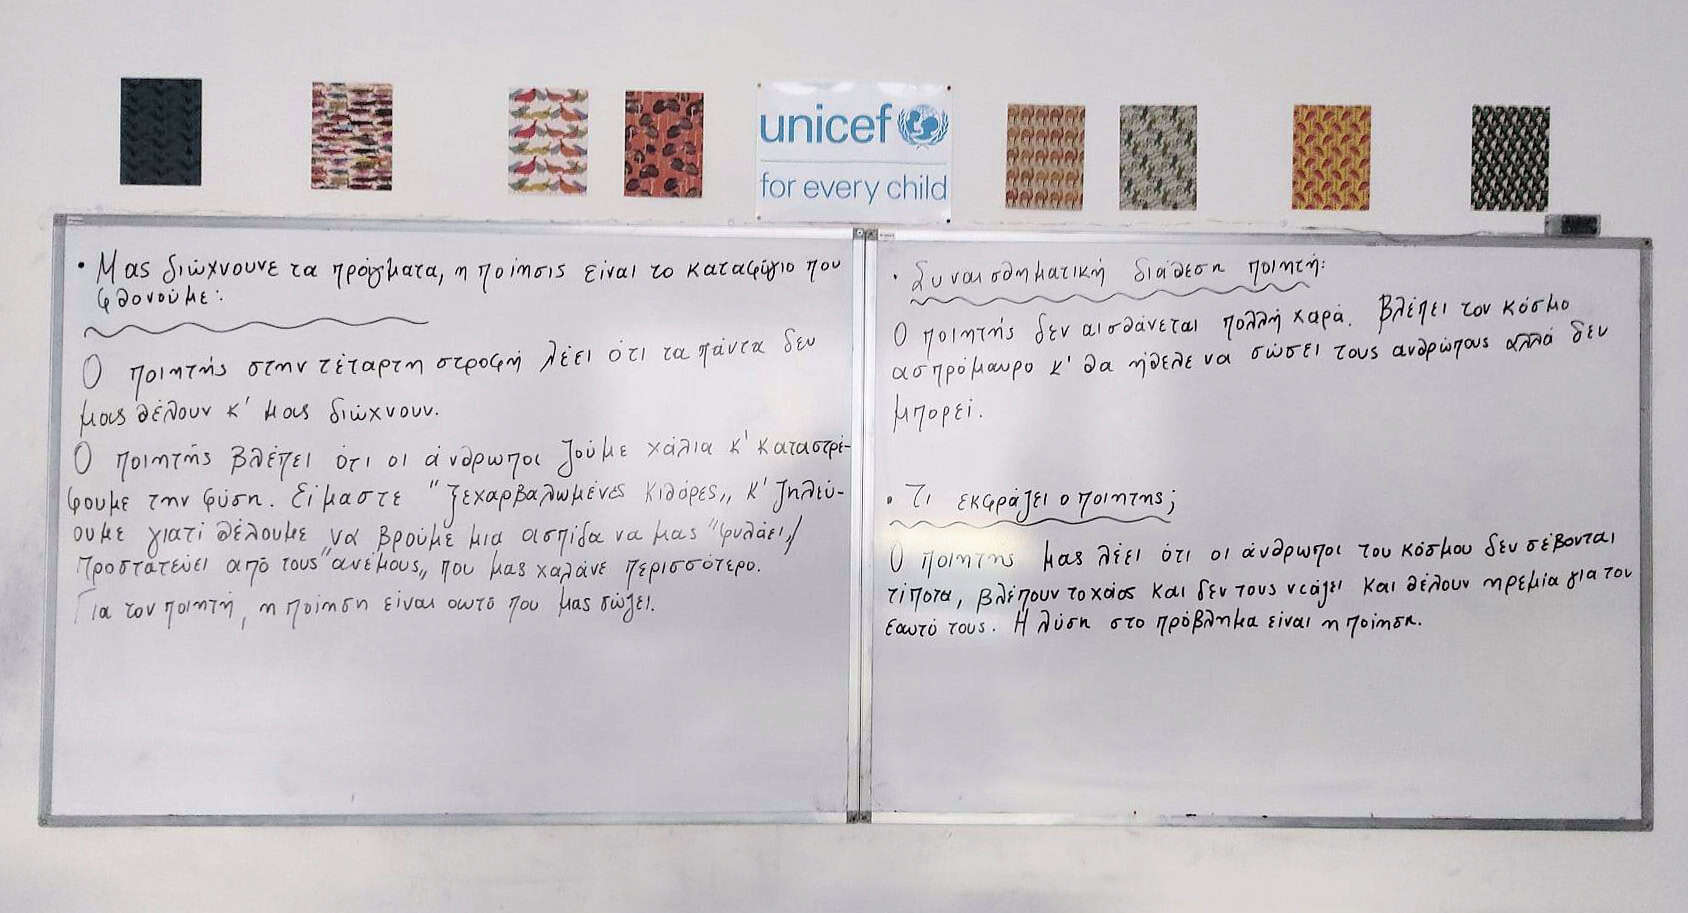 unicef
for every child
• Μας διώχνουνε τα πράγματα, η ποίησις είναι το καταφύγιο που
φθονούμε:
Ο ποιητής στην τέταρτη στροφή λέει ότι τα πάντα δεν
μας θέλουν κ' μας διώχνουν.
Ο ποιητής βλέπει ότι οι άνθρωποι ζούμε χάλια κ' καταστρέ-
φουμε την φύση. Είμαστε "ξεχαρβαλωμένες κιθάρες,, κ' ζηλεύ-
ουμε γιατί θέλουμε να βρούμε μια ασπίδα να μας "φυλάει,/
προστατεύει από τους "ανέμους,, που μας χαλάνε περισσότερο.
Για τον ποιητή, η ποίηση είναι αυτό που μας σώζει.
• Συναισθηματική διάθεση ποιητή:
Ο ποιητής δεν αισθάνεται πολλή χαρά. Βλέπει τον κόσμο
ασπρόμαυρο κ' θα ήθελε να σώσει τους ανθρώπους αλλά δεν
μπορεί.
• Τι εκφράζει ο ποιητης;
Ο ποιητης μας λέει ότι οι άνθρωποι του κόσμου δεν σέβονται
τίποτα, βλέπουν το χάος και δεν τους νοιάζει και θέλουν ηρεμία για τον
εαυτό τους. Η λύση στο πρόβλημα είναι η ποίηση.